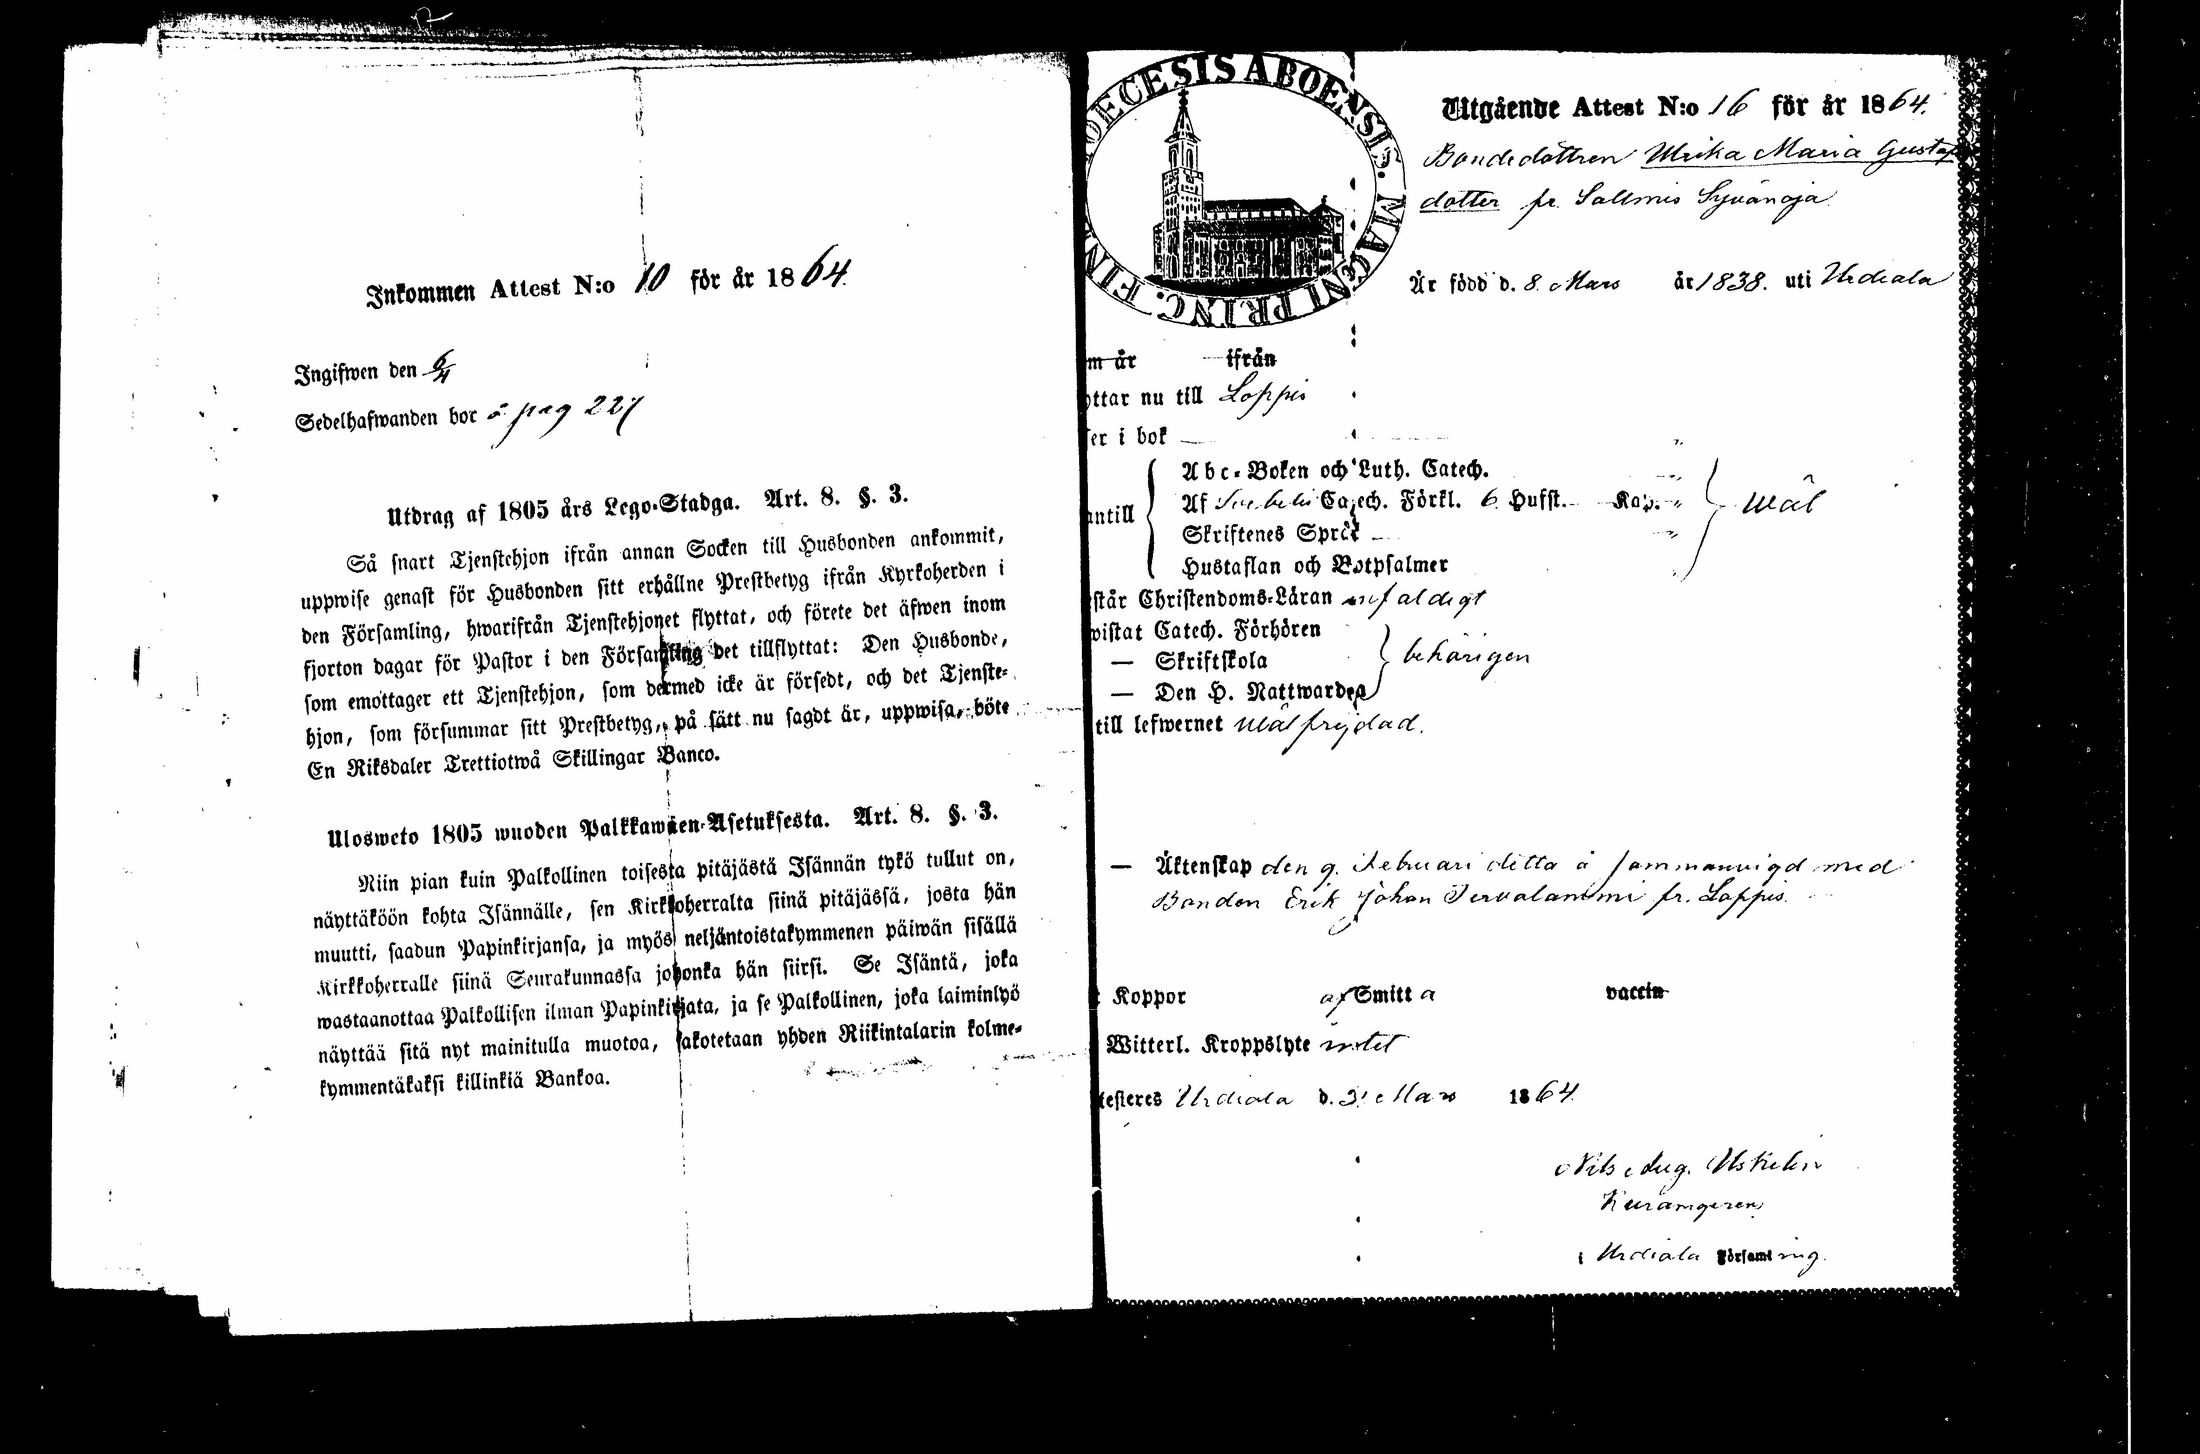 Inkommen Attest N:o 10 för år 1864.
Ingifwen den 6/4
Sedelhafwanden bor å pag 227
Utdrag af 1805 års Lego-Stadga. Art. 8. §. 3.
Så snart Tjenstehjon ifrån annan Socken till Husbonden ankommit,
uppwise genast för Husbonden sitt erhållne Prestbetyg ifrån Kyrkoherden i
den Församling, hwarifrån Tjenstehjonet flyttat, och förete det äfwen inom
fjorton dagar för Pastor i den Församling det tillflyttat: Den Husbonde,
som emottager ett Tjenstehjon, som dermed icke är försedt, och det Tjenste-
hjon, som försummar sitt Prestbetyg, på sätt nu sagdt är, uppwisa, böte
En Riksdaler Trettiotwå Skillingar Banco.
Ulosweto 1805 wuoden Palkkawäen-Asetuksesta. Art. 8. §. 3.
Niin pian kuin Palkollinen toisesta pitäjästä Isännän tykö tullut on,
näyttäköön kohta Isännälle, sen Kirkkoherralta siinä pitäjässä, josta hän
muutti, saadun Papinkirjansa, ja myös neljäntoistakymmenen päiwän sisällä
Kirkkoherralle siinä Seurakunnassa johonka hän siirsi. Se Isäntä, joka
wastaanottaa Palkollisen ilman Papinkirjata, ja se Palkollinen, joka laiminlyö
näyttää sitä nyt mainitulla muotoa, sakotetaan yhden Riikintalarin kolme-
kymmentäkaksi killinkiä Bankoa.
DECESIS ABOENSIS. MAGNI PRINC. FIN
Utgående Attest N:o 16 för år 1864.
Bondedottren Ulrika Maria Gustaf
dotter fr. Sallmis Syvänoja
Är född d. 8 Mars år 1838. uti Urdiala
m år ifrån
ttar nu till Loppis
er i bok
Abc-Boken och Luth. Catech.
antill Af Svebelii Catech. Förkl. 6 Hufst. Kap. wäl
Skriftenes Språk
Hustaflan och Botpsalmer
står Christendoms-Läran enfaldigt
wistat Catech. Förhören
— Skriftskola behörigen
— Den H. Nattwarden
till lefwernet wälfrejdad.
— Äktenskap den 9. Februari detta å sammanvigd med
Bonden Erik Johan Tervalammi fr. Loppis.
Koppor af Smitta vaccin
Witterl. Kroppslyte intet
testeres Urdiala d. 31 Mars 1864.
Nils Aug. Uskelin
i Urdiala Församling.